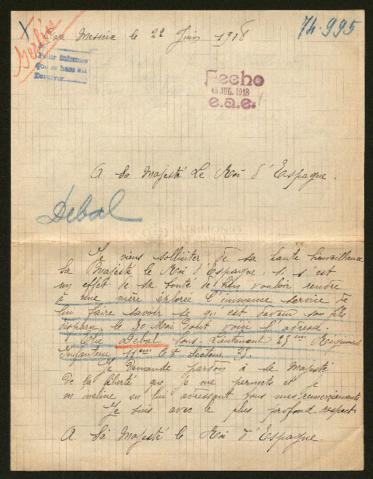 Messina le 22 Juin 1918
74.995
Berlin
Fecho
JUL. 1918
e.a.e.
A Sa Majesté Le Roi d'Espagne.
Débal
Je viens solliciter de sa haute bienveillance
Sa Majesté le Roi d'Espagne, si s'est
un effet de sa bonté de bien vouloir rendre
à une mère éplorée l'immense service de
lui faire savoir ce qui est devenu son fils
disparu le 30 Mai dont voici l'adresse
Débal Sous Lieutenant 23me Régiment
Infanterie 11me Cie Secteur
Je demande pardon à sa Majesté
de la liberté que je me permets et je
m'incline en lui adressant tous mes remerciements
Je suis avec le plus profond respect
A Sa Majesté le Roi d'Espagne.